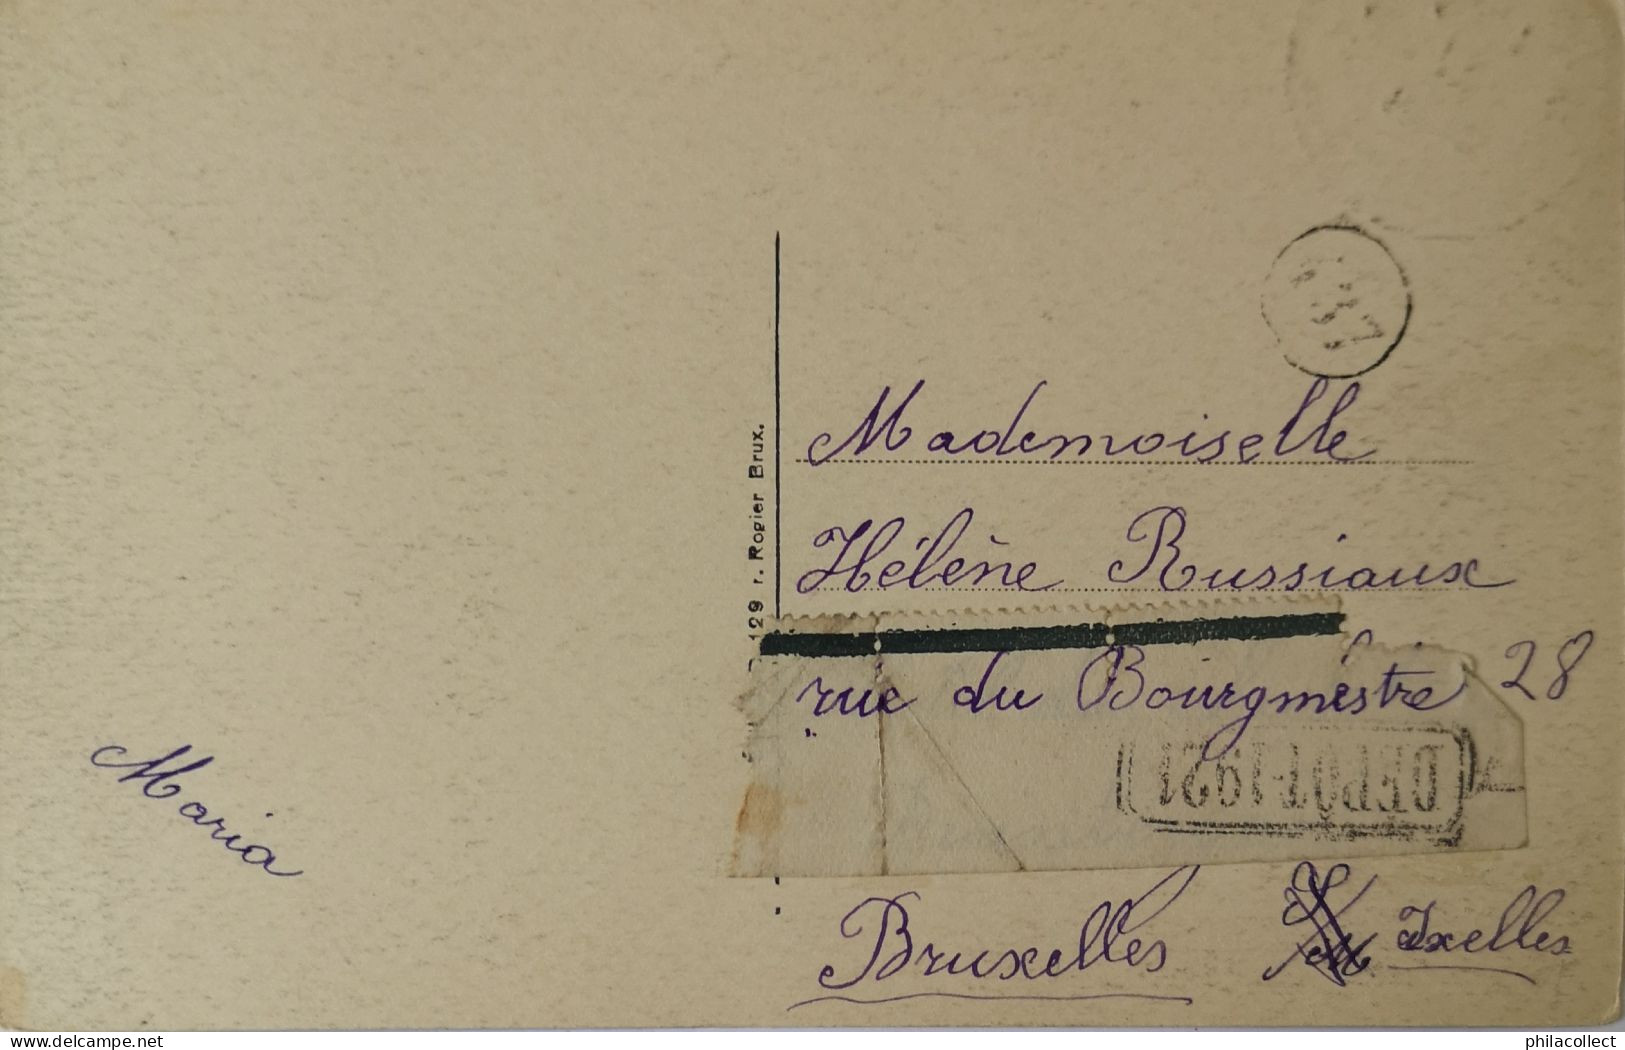 129 r. Rogier Brux.
Mademoiselle
Hélène Russiaux
rue du Bourgmestre 28
DEPOT-1921
Maria
Bruxelles Ixelles
delcampe.net
philacollect